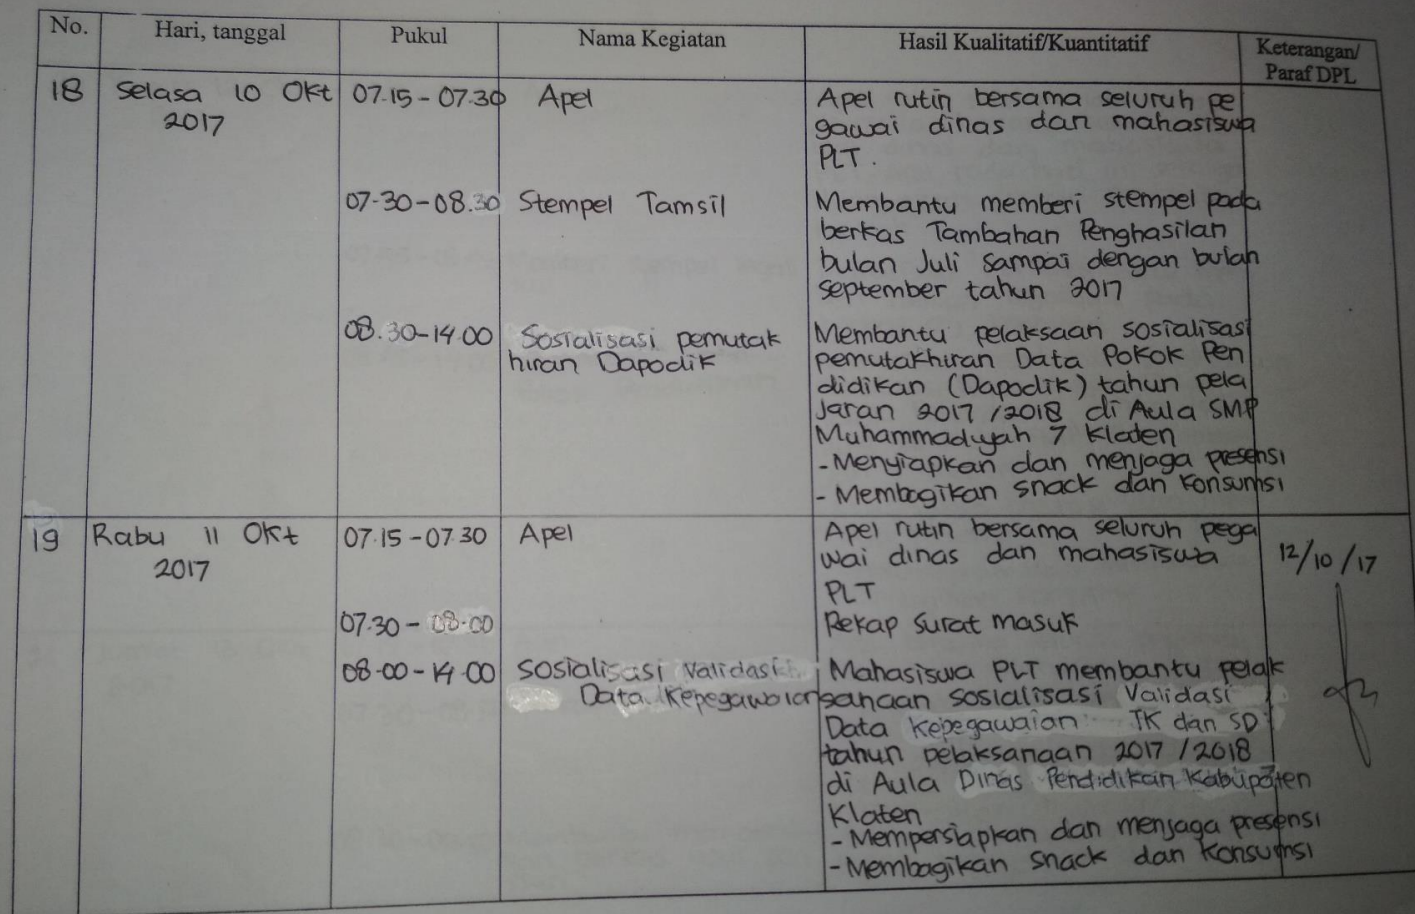 No. Hari, tanggal Pukul Nama Kegiatan Hasil Kualitatif/Kuantitatif Keterangan/
Paraf DPL
18 Selasa 10 Okt 07.15 - 07.30 Apel Apel rutin bersama seluruh pe
2017 gawai dinas dan mahasiswa
PLT.
07.30 - 08.30 Stempel Tamsil Membantu memberi stempel pada
berkas Tambahan Penghasilan
bulan Juli sampai dengan bulan
September tahun 2017
08.30 - 14.00 Sosialisasi pemutak Membantu pelaksaan sosialisasi
hiran Dapodik pemutakhiran Data Pokok Pen
didikan (Dapodik) tahun pela
jaran 2017/2018 di Aula SMP
Muhammadiyah 7 Klaten
- Menyiapkan dan menjaga presensi
- Membagikan snack dan konsumsi
19 Rabu 11 Okt 07.15 - 07.30 Apel Apel rutin bersama seluruh pega
2017 wai dinas dan mahasiswa 12/10/17
PLT
07.30 - 08.00 Rekap surat masuk
08.00 - 14.00 Sosialisasi Validasi Mahasiswa PLT membantu pelak
Data Kepegawaian sanaan sosialisasi Validasi
Data Kepegawaian TK dan SD
tahun pelaksanaan 2017/2018
di Aula Dinas Pendidikan Kabupaten
Klaten
- Mempersiapkan dan menjaga presensi
- Membagikan snack dan konsumsi